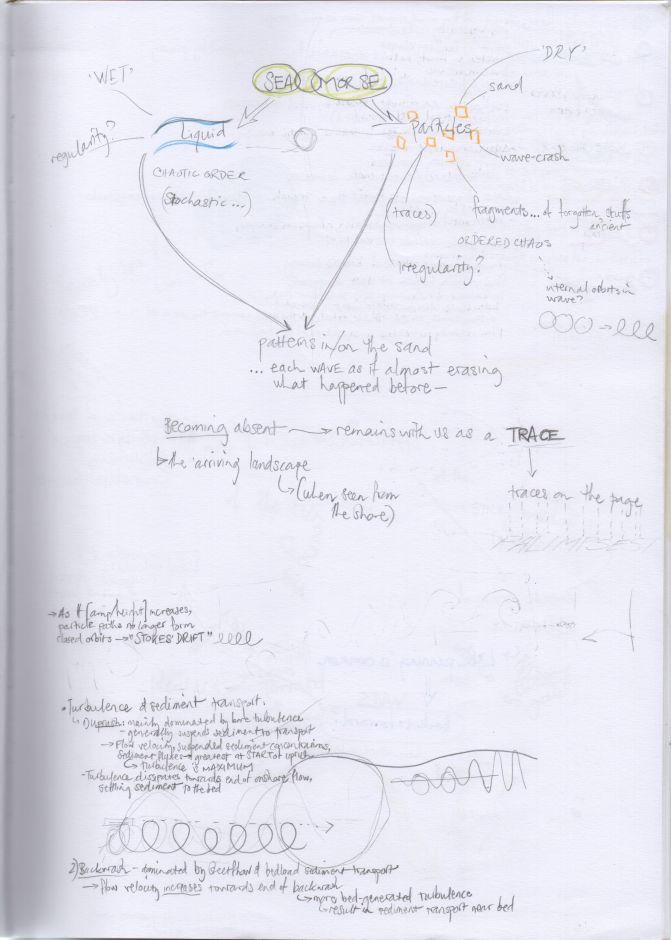 SEA MORSE
'WET'
'DRY'
sand
regularity?
Liquid
particles
wave-crash
CHAOTIC ORDER
(Stochastic ...)
(traces)
fragments... of forgotten stuffs
ancient
ORDERED CHAOS
irregularity?
internal orbits in
wave?
patterns in/on the sand
... each WAVE as if almost erasing
what happened before —
Becoming absent → remains with us as a TRACE
↳ the 'arriving landscape
↳ (when seen from
the shore)
traces on the page
PALIMPSEST
→ As H [amp/height] increases,
particle paths no longer form
closed orbits → "STOKES DRIFT"
• Turbulence & sediment transport.
↳ 1) Uprush: mainly dominated by bore turbulence
- generally suspends sediment to transport
→ Flow velocity, suspended sediment concentrations,
sediment fluxes → greatest at START of uprush
↳ turbulence is MAXIMUM
- Turbulence dissipates towards end of onshore flow,
settling sediment to the bed
2) Backwash - dominated by sheet flow & bedload sediment transport
→ flow velocity increases towards end of backwash
↳ more bed-generated turbulence
↳ result in sediment transport near bed